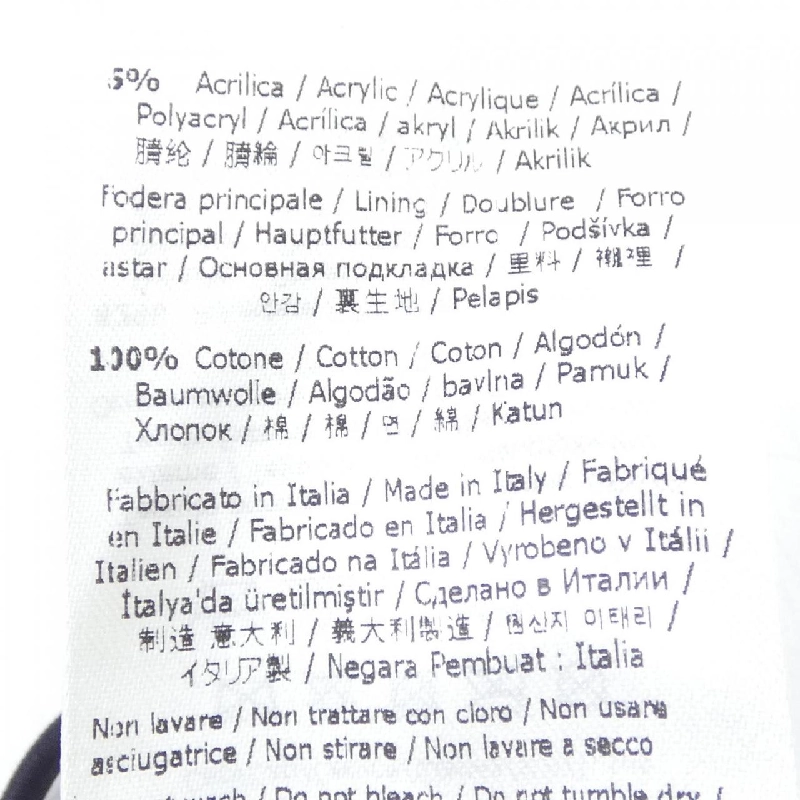 5% Acrilica / Acrylic / Acrylique / Acrílica /
Polyacryl / Acrílica / akryl / Akrilik / Акрил /
腈纶 / 腈綸 / 아크릴 / アクリル / Akrilik
Fodera principale / Lining / Doublure / Forro
principal / Hauptfutter / Forro / Podšívka /
astar / Основная подкладка / 里料 / 襯裡 /
안감 / 裏生地 / Pelapis
100% Cotone / Cotton / Coton / Algodón /
Baumwolle / Algodão / bavlna / Pamuk /
Хлопок / 棉 / 棉 / 면 / 綿 / Katun
Fabbricato in Italia / Made in Italy / Fabriqué
en Italie / Fabricado en Italia / Hergestellt in
Italien / Fabricado na Itália / Vyrobeno v Itálii /
İtalya'da üretilmiştir / Сделано в Италии /
制造 意大利 / 義大利製造 / 원산지 이태리 /
イタリア製 / Negara Pembuat : Italia
Non lavare / Non trattare con cloro / Non usare
asciugatrice / Non stirare / Non lavare a secco
wash / Do not bleach / Do not tumble dry /